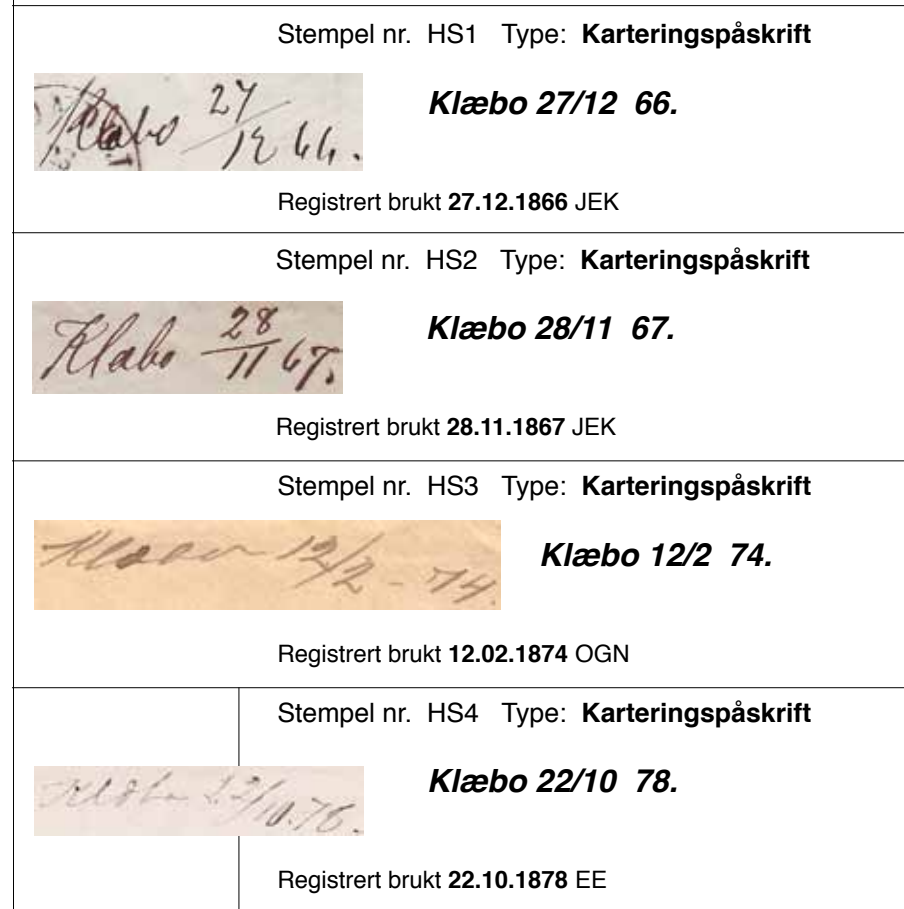 Stempel nr. HS1 Type: Karteringspåskrift
Klæbo 27/12 66.
Klæbo 27/12 66.
Registrert brukt 27.12.1866 JEK
Stempel nr. HS2 Type: Karteringspåskrift
Klæbo 28/11 67.
Klæbo 28/11 67.
Registrert brukt 28.11.1867 JEK
Stempel nr. HS3 Type: Karteringspåskrift
Klæbo 12/2 - 74.
Klæbo 12/2 74.
Registrert brukt 12.02.1874 OGN
Stempel nr. HS4 Type: Karteringspåskrift
Klæbo 22/10.78.
Klæbo 22/10 78.
Registrert brukt 22.10.1878 EE